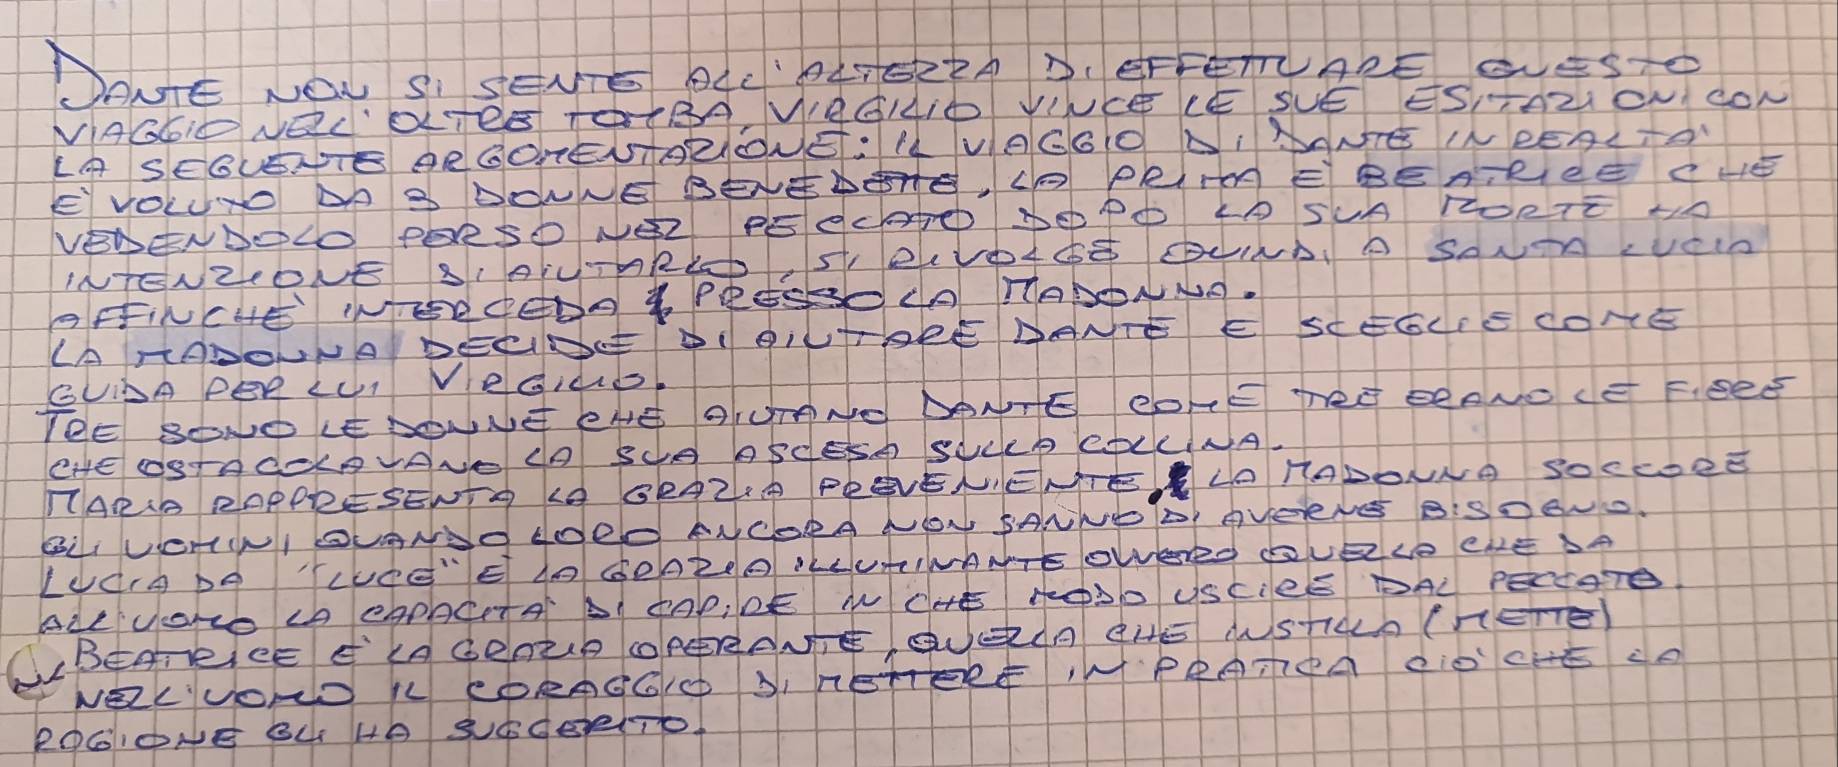 DANTE NON SI SENTE ALL'ALTEZZA DI EFFETTUARE QUESTO
VIAGGIO NELL'OLTRE TOMBA, VIRGILIO VINCE LE SUE ESITAZIONI CON
LA SEGUENTE ARGOMENTAZIONE: IL VIAGGIO DI DANTE IN REALTA'
E' VOLUTO DA 3 DONNE BENEDETTE, LA PRIMA E' BEATRICE CHE
VEDENDOLO PERSO NEL PECCATO DOPO LA SUA MORTE HA
INTENZIONE DI AIUTARLO, SI RIVOLGE QUINDI A SANTA LUCIA
AFFINCHE' INTERCEDA PRESSO LA MADONNA.
LA MADONNA DECIDE DI AIUTARE DANTE E SCEGLIE COME
GUIDA PER LUI VIRGILIO.
TRE SONO LE DONNE CHE AIUTANO DANTE COME TRE ERANO LE FIERE
CHE OSTACOLAVANO LA SUA ASCESA SULLA COLLINA.
MARIA RAPPRESENTA LA GRAZIA PREVENIENTE, LA MADONNA SOCCORE
GLI UOMINI QUANDO LORO ANCORA NON SANNO DI AVERNE BISOGNO.
LUCIA DA "LUCE" E' LA GRAZIA ILLUMINANTE OVVERO QUELLA CHE DA
ALL'UOMO LA CAPACITA' DI CAPIRE IN CHE MODO USCIRE DAL PECCATO.
BEATRICE E' LA GRAZIA OPERANTE, QUELLA CHE INSTILLA (METTE)
NELL'UOMO IL CORAGGIO DI METTERE IN PRATICA CIO' CHE LA
RAGIONE GLI HA SUGGERITO.